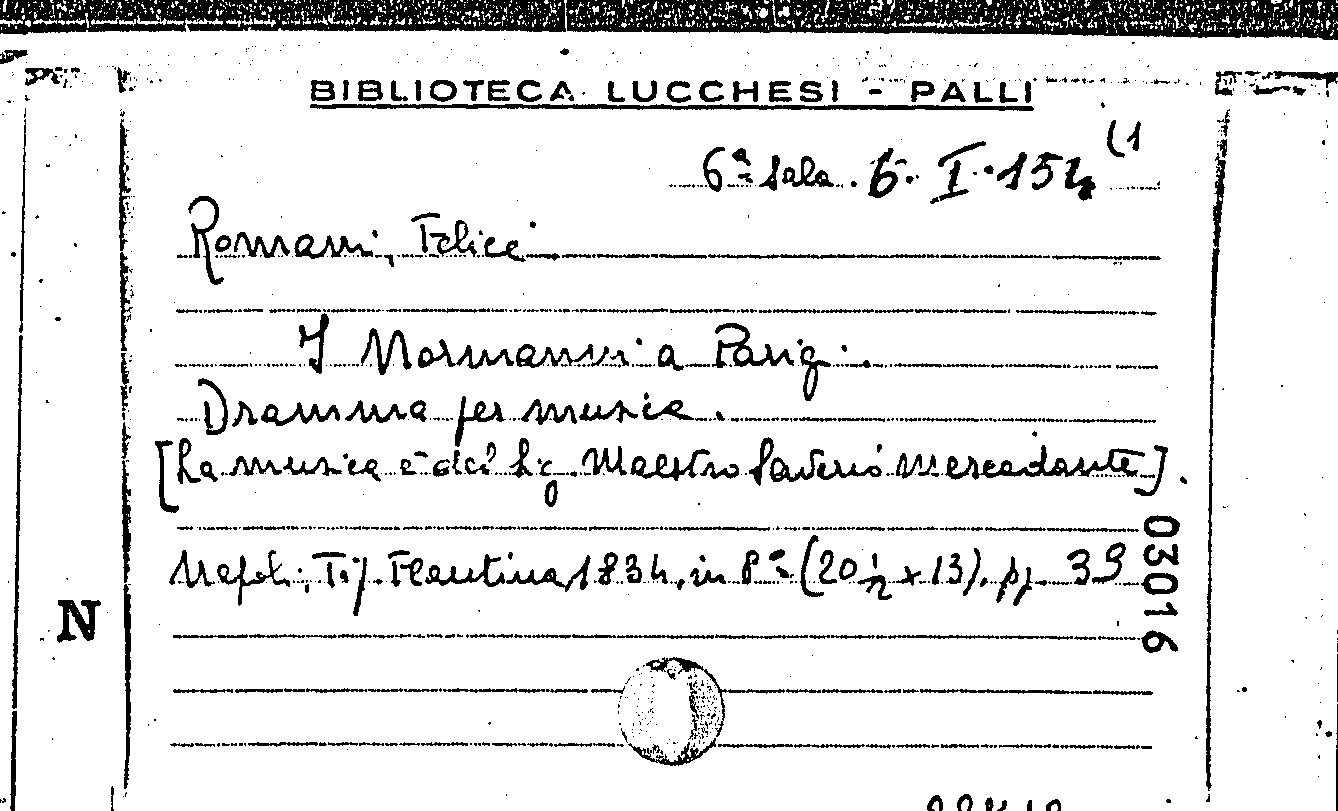 BIBLIOTECA LUCCHESI - PALLI
6ª Sala. 6. I. 154 (1
Romani, Felice
I Normanni a Parigi.
Dramma per musica.
[La musica è del Sig. Maestro Saverio Mercadante].
Napoli, Tip. Flautina, 1834, in 8° (20½ x 13), pp. 39
03016
N